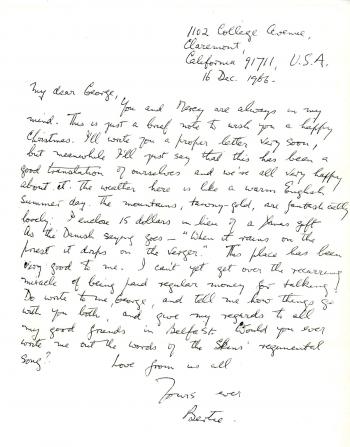 1102 College Avenue,
Claremont,
California 91711, U.S.A.
16 Dec. 1966.
My dear George,
You and Mercy are always in my
mind. This is just a brief note to wish you a happy
Christmas. I'll write you a proper letter very soon,
but meanwhile I'll just say that this has been a
good translation of ourselves and we're all very happy
about it. The weather here is like a warm English
Summer day. The mountains, tawny-gold, are fantastically
lovely. I enclose 15 dollars in lieu of a Xmas gift
As the Danish saying goes – "When it rains on the
priest it drips on the verger." This place has been
very good to me. I can't yet get over the recurring
miracle of being paid regular money for talking!
Do write to me George, and tell me how things go
with you both, and give my regards to all
my good friends in Belfast. Would you ever
write me out the words of the Skins' regimental
song?
Love from us all
Yours ever
Bertie.